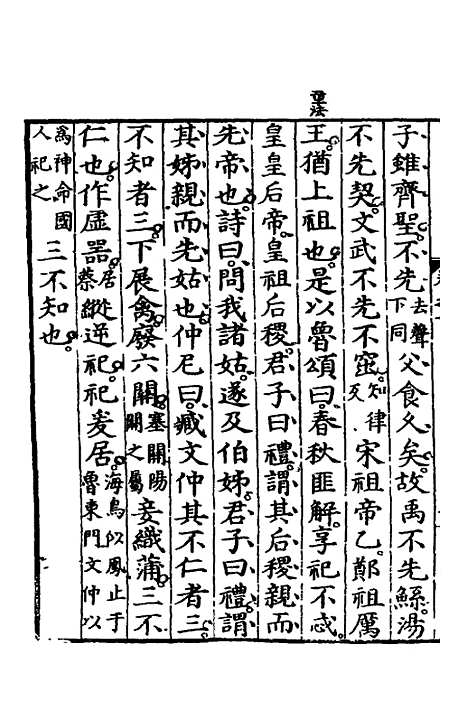 章法
子雖齊聖。不先去聲下同父食久矣。故禹不先鯀。湯
不先契。文武不先不窋。知律反宋祖帝乙。鄭祖厲
王。猶上祖也。是以魯頌曰。春秋匪解。享祀不忒。
皇皇后帝。皇祖后稷。君子曰禮。謂其后稷親而
先帝也。詩曰。問我諸姑。遂及伯姊。君子曰禮。謂
其姊親而先姑也。仲尼曰。臧文仲其不仁者三。
不知者三。下展禽。廢六關。塞關陽關之屬妾織蒲。三不
仁也。作虛器。居蔡縱逆祀。祀爰居。海鳥似鳳止于魯東門文仲以
爲神命國人祀之三不知也。